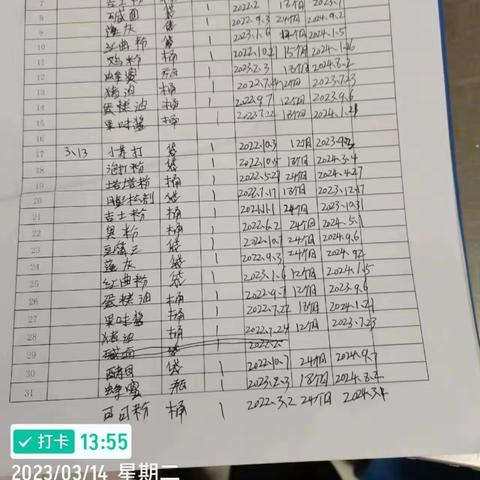 7 吉士粉 袋 1 2022.2 12个月 2023.1
8 1 2022.9.3 24个月 2024.9.2
9 蓬灰 袋 1 2023.1.6 12个月 2024.1.5
10 红曲粉 袋 1
11 鸡粉 桶 1 2022.10.2 15个月
12 蜂蜜 瓶 1 2023.2.3 18个月 2024.8.2
13 猪油 桶 1 2022.7.24 12个月 2023.7.23
14 蛋糕油 桶 1 2022.9.7 12个月 2023.9.6
15 果味酱 桶 1 2022.7.22 18个月 2024.1.21
17 3.13 小苏打 袋 1 2022.10.3 12个月
18 泡打粉 袋 1 18个月 2024.3.4
19 塔塔粉 桶 1 24个月 2024.4.27
20 袋 1 2022.7.17 18个月
21 吉士粉 桶 1 24个月 2023.10.31
22 臭粉 桶 1 2022.6.2 24个月 2024.5.1
23 袋 1 2022.10.7 24个月 2024.9.6
24 蓬灰 袋 1 2022.9.3 24个月 2024.9.2
25 红曲粉 袋 1 2023.1.6 12个月 2024.1.5
26 蛋糕油 桶 1 2022.9.7 12个月 2023.9.6
27 果味酱 桶 1 2022.7.22 18个月 2024.1.21
28 猪油 桶 1 2022.7.24 12个月 2023.7.23
29 袋 1 2022.2
30 袋 1 2022.10.7 24个月 2024.9.7
31 蜂蜜 瓶 1 2023.2.3 18个月 2024.8.2
可可粉 桶 1 2022.3.2 24个月 2024.3.4
打卡 13:55
2023/03/14 星期二